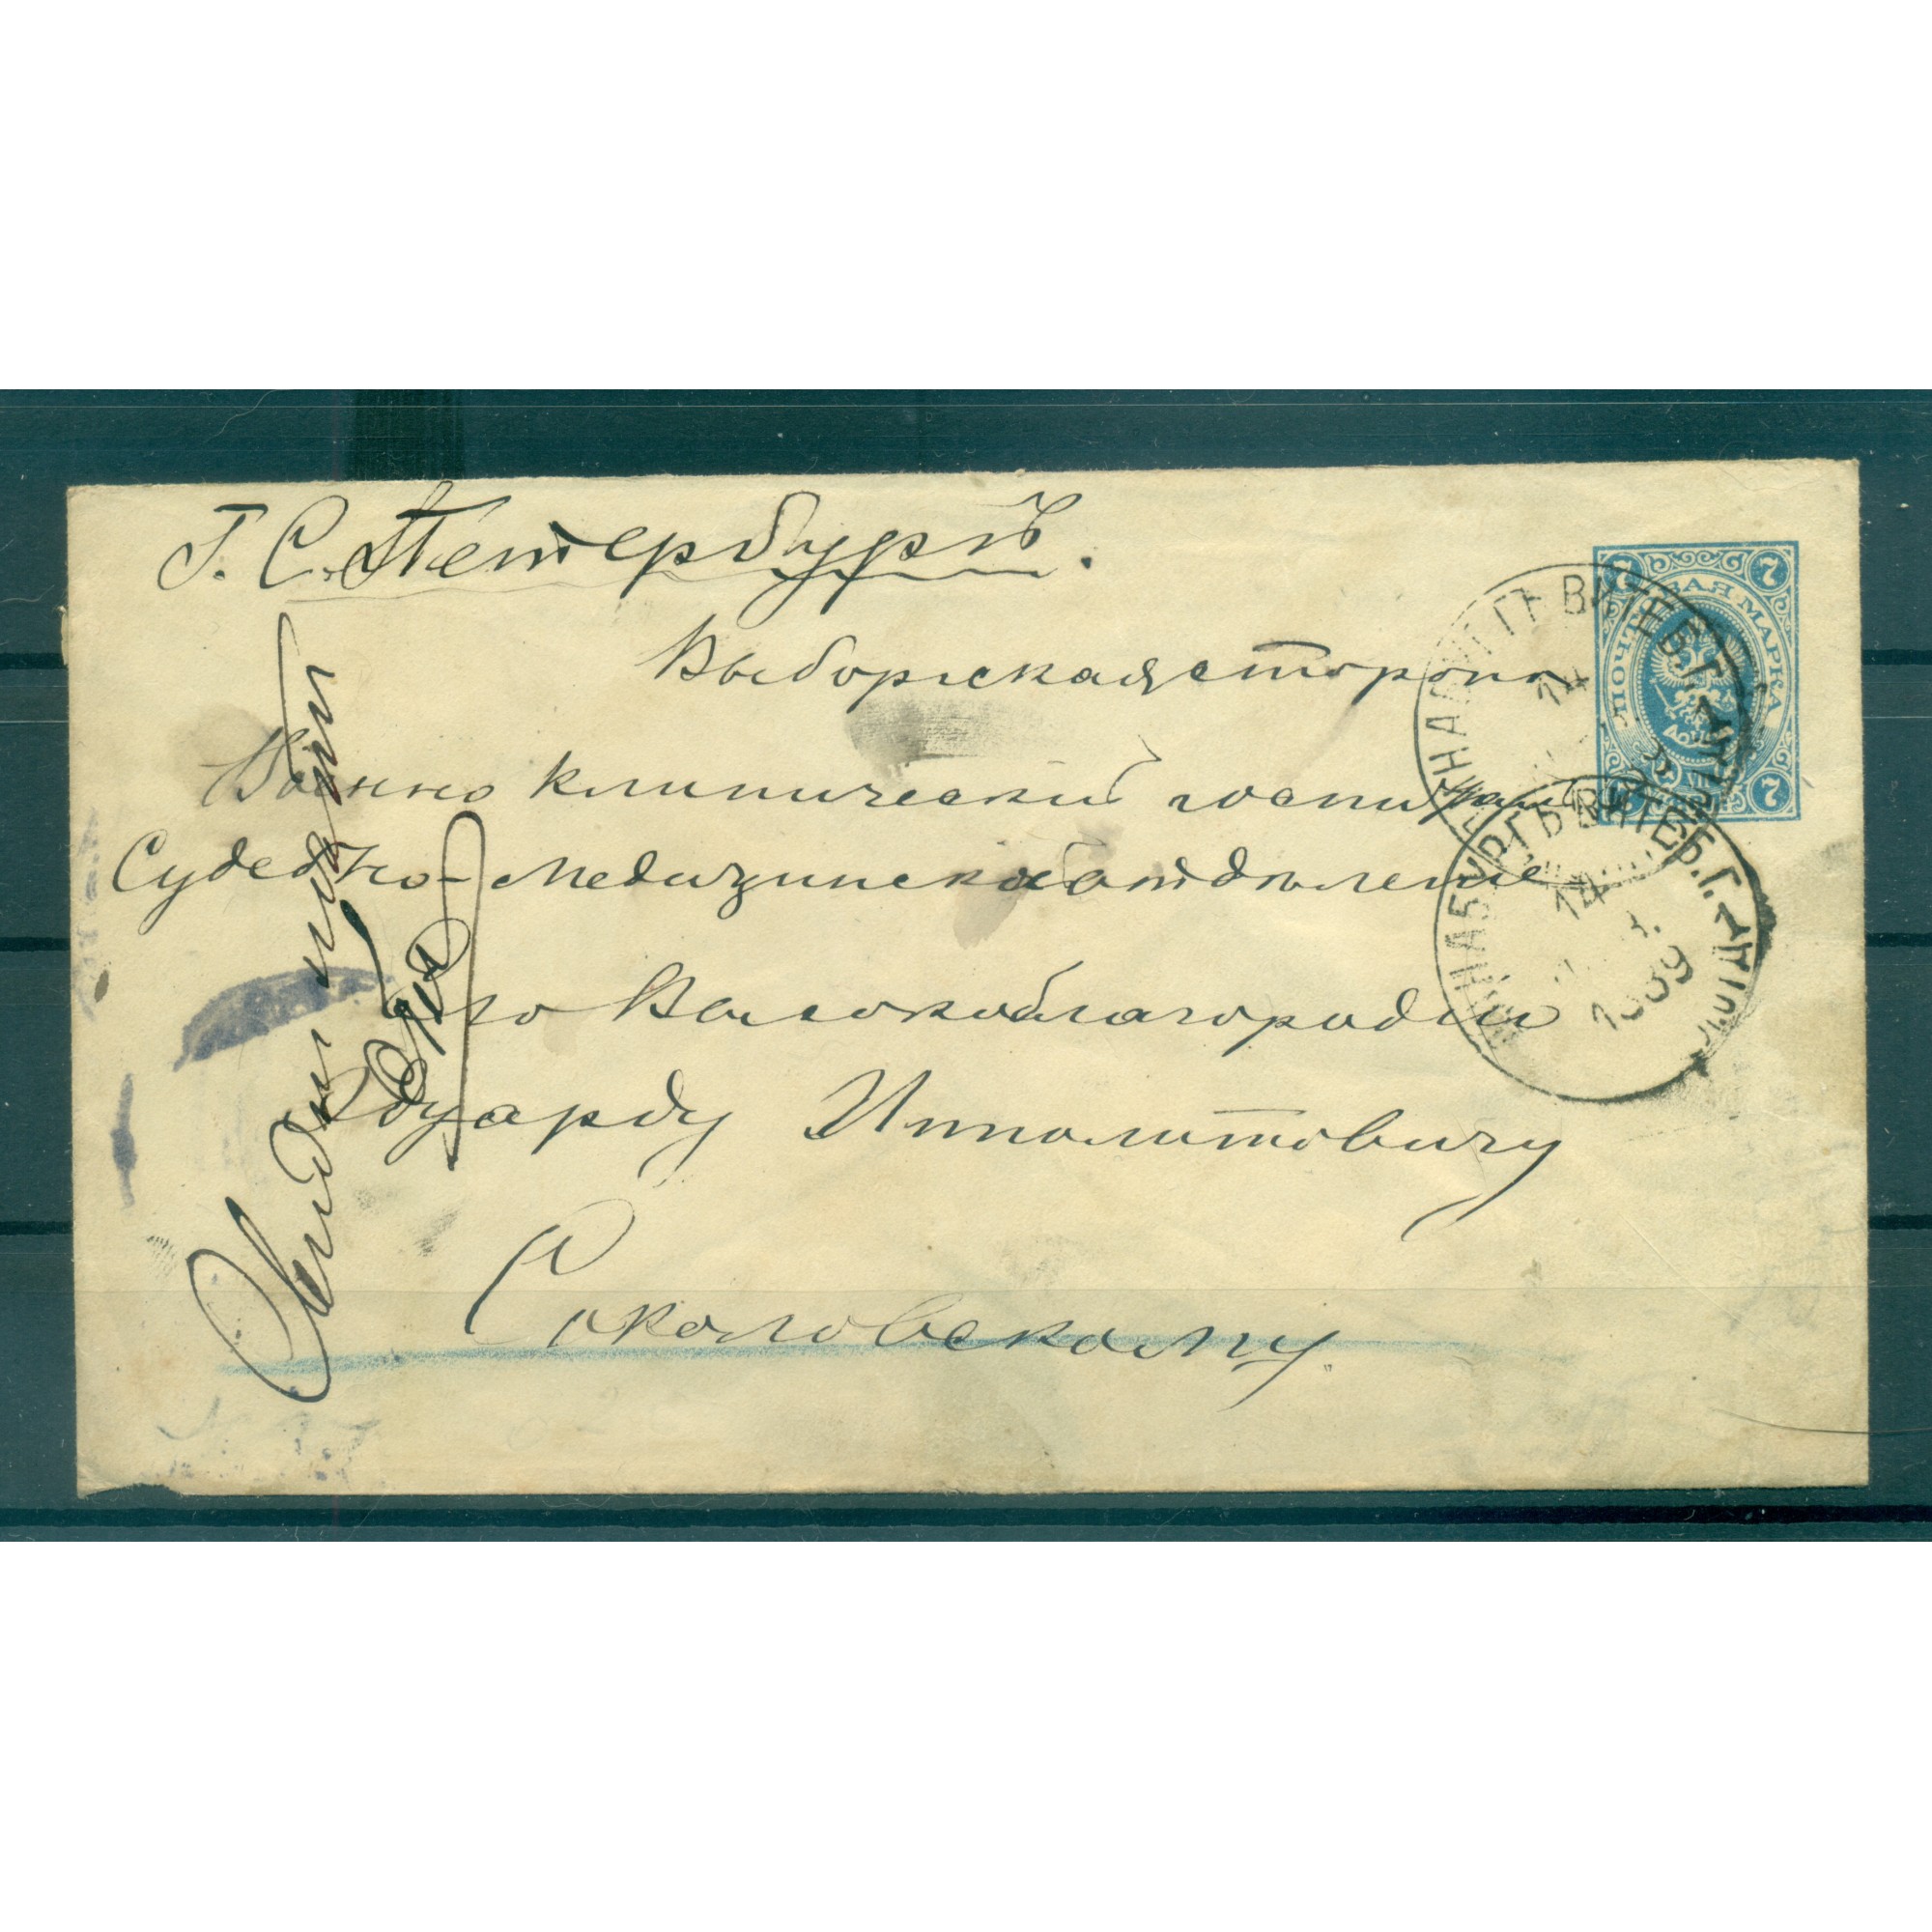 Г. С. Петербургъ.
Выборгская сторона
Военно клинический госпиталь
Судебно-Медицинское отдѣление
Его Высокоблагородию
Эдуарду Ипполитовичу
Соколовскому
7 7
ПОЧТОВАЯ МАРКА
7 7
ДИНАБУРГЪ ВИТЕБ. Г.
14
ДИНАБУРГЪ ВИТЕБ. Г.
14
1889